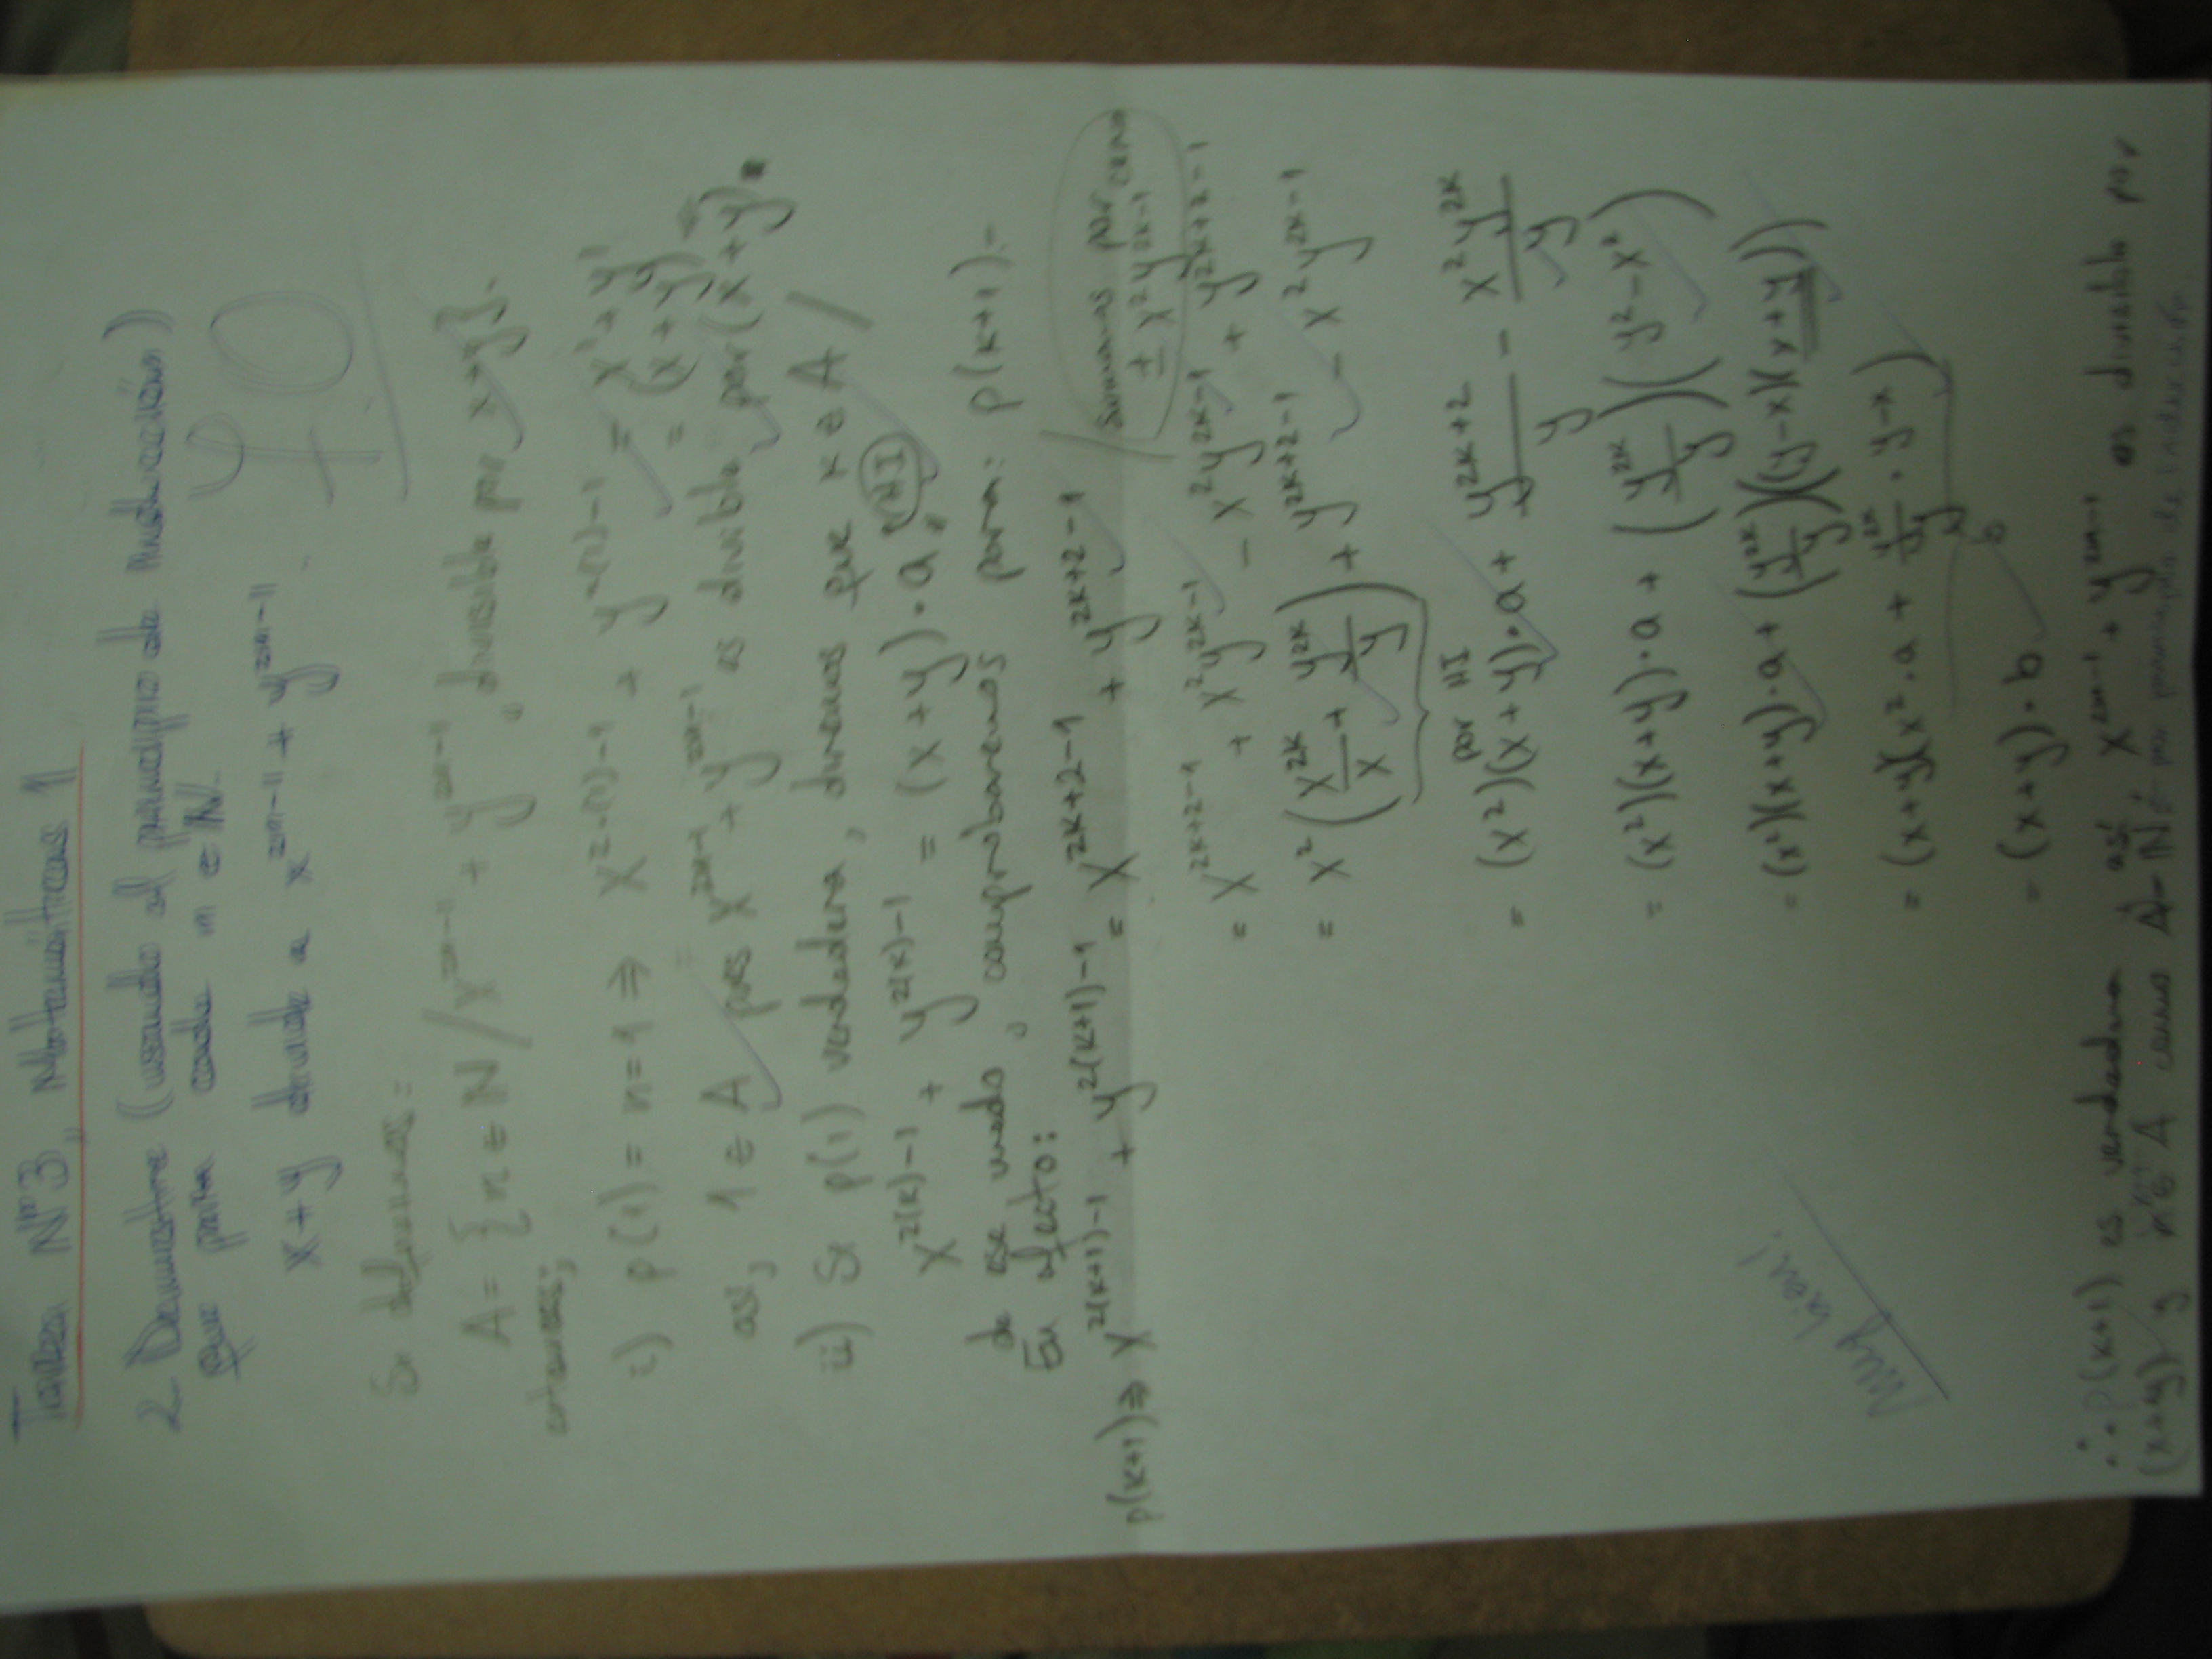 Tarea N°3, Matemáticas 1
2 Demuestre (usando el principio de inducción)
que para cada n ∈ N
x+y divide a x^{2n-1} + y^{2n-1}
7.0
Se definimos:
A = {n ∈ N / x^{2n-1} + y^{2n-1}, divisible por x+y}.
entonces;
i) p(1) = n=1 ⇒ x^{2·(1)-1} + y^{2(1)-1} = x^1 + y^1
= (x+y)
así, 1 ∈ A pues x^{2n-1} + y^{2n-1} es divisible por (x+y).
ii) Si p(1) verdadera, diremos que k ∈ A /
x^{2(k)-1} + y^{2(k)-1} = (x+y)·a, HI
de ese modo, comprobaremos para: p(k+1).-
En efecto:
sumamos por cero
± x^2 y^{2k-1}
p(k+1) ⇒ x^{2(k+1)-1} + y^{2(k+1)-1} = x^{2k+2-1} + y^{2k+2-1}
= x^{2k+2-1} + x^2 y^{2k-1} - x^2 y^{2k-1} + y^{2k+2-1}
= x^2 (x^{2k}/x + y^{2k}/y) + y^{2k+2-1} - x^2 y^{2k-1}
por HI
= (x^2)(x+y)·a + y^{2k+2}/y - x^2 y^{2k}/y
= (x^2)(x+y)·a + (y^{2k}/y)(y^2-x^2)
= (x^2)(x+y)·a + (y^{2k}/y)(y-x)(x+y)
= (x+y)(x^2·a + y^{2k}/y · y-x)
b
= (x+y)·b
Muy bien!
∴ p(k+1) es verdadera así x^{2n-1} + y^{2n-1} es divisible por
(x+y) y A como A = N por principio de inducción.